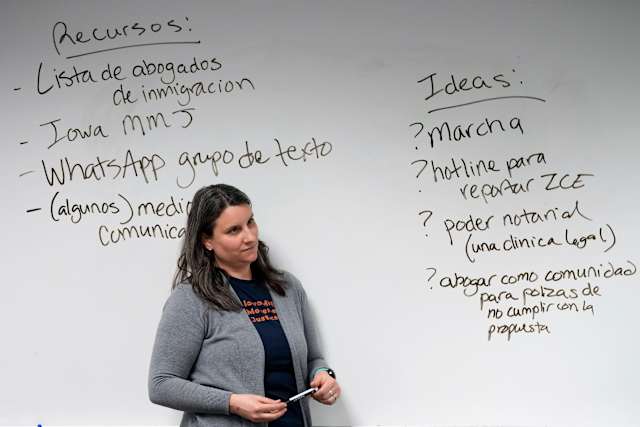 Recursos:
- Lista de abogados
de inmigracion
- Iowa MMJ
- WhatsApp grupo de texto
- (algunos) medi
comunica
Ideas:
? Marcha
? hotline para
reportar ICE
? poder notarial
(una clinica legal)
? abogar como comunidad
para polizas de
no cumplir con la
propuesta